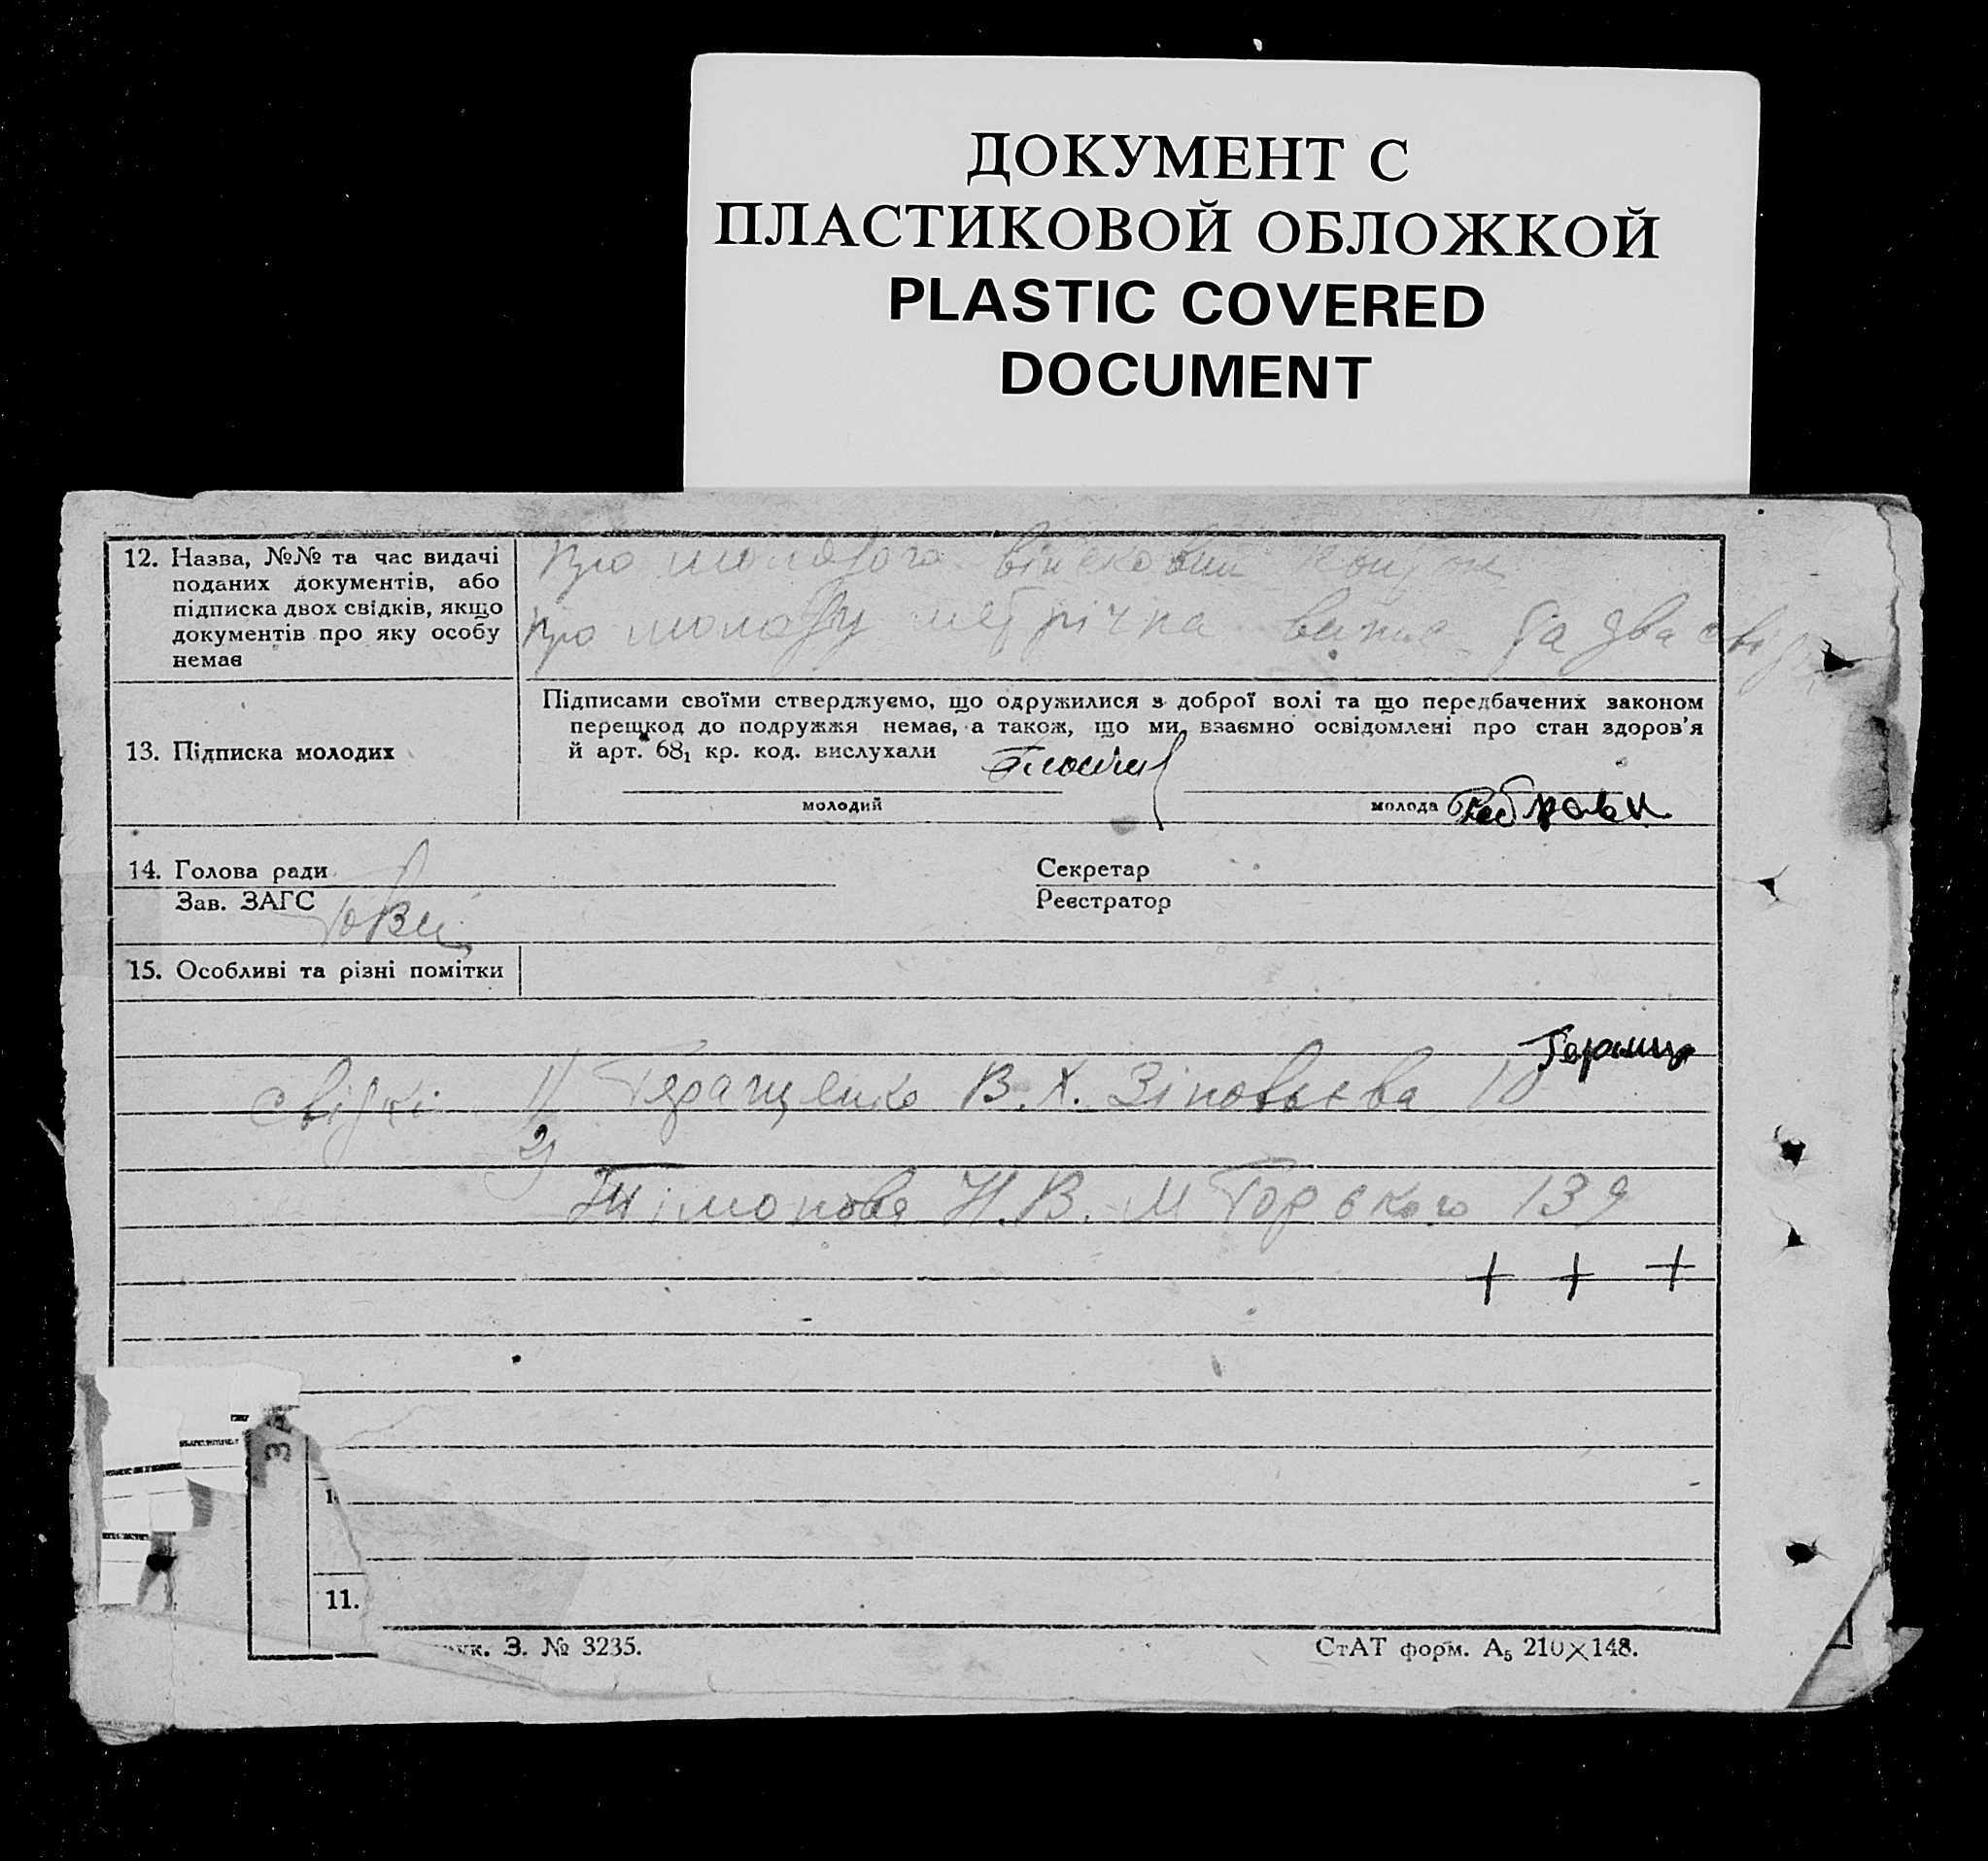 ДОКУМЕНТ С
ПЛАСТИКОВОЙ ОБЛОЖКОЙ
PLASTIC COVERED
DOCUMENT
12. Назва, №№ та час видачі
поданих документів, або
підписка двох свідків, якщо
документів про яку особу
немає
Про молодого військовий
Про молоду метрічна да два свід
13. Підписка молодих
Підписами своїми стверджуємо, що одружилися з доброї волі та що передбачених законом
перешкод до подружжя немає, а також, що ми взаємно освідомлені про стан здоров'я
й арт. 68₁ кр. код. вислухали
молодий
молода
14. Голова ради
Секретар
Зав. ЗАГС
Реєстратор
15. Особливі та різні помітки
свідкі 1) Геращенко В. Х. Зіновьєва 10
2)
Тімонова Н. В. М Горького 139
+ + +
ЗА
11.
ук. З. № 3235.
СтАТ форм. А₅ 210×148.